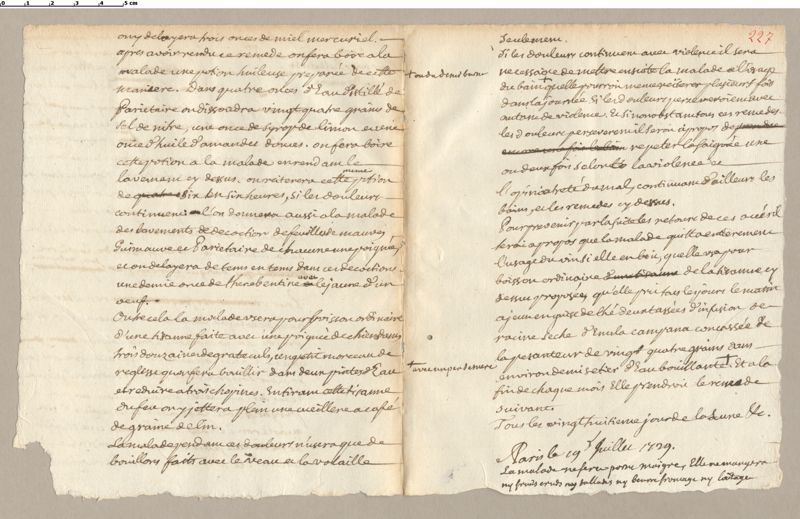 on y delayera trois onces de miel mercuriel.
apres avoir rendu ce remede on fera boire a la
malade une potion huileuse preparée de cette
maniere. Dans quatre onces d'Eau distillée de
Parietaire on dissoudra vingt quatre grains de
Sel de nitre, une once de Syrop de limon et une
once d'huile d'amandes douces. on fera boire
cette potion a la malade en rendant le
lavement cy dessus. on reiterera cette même potion
de quatre Six en Six heures, Si les douleurs
continuent. l'on donnera aussi a la malade
des lavements de decoction de feuilles de mauves
Guimauve et Parietaire de chacune une poignée
et on delayera de tems en tems dans ces decoctions
une demie once de therebentine avec le jaune d'un
oeuf.
Outre cela la malade usera pour boisson ordinaire
d'une tisanne faite avec une poignée de chiendent
trois douzaine de gratteculs, un petit morceau de
reglisse qu'on fera bouillir dans deux pintes d'Eau
et reduire a trois chopines. En tirant cette tisanne
du feu on y jettera plein une cueillere a caffé
de graine de lin.
La malade pendant ces douleurs n'usera que de
bouillons faits avec le Veau et la volaille
227
Seulement.
Si les douleurs continuent avec violence il sera
necessaire de mettre ensuite la malade a l'usage
+ ou du demis bain
du bain + quelle pourra meme reiterer plusieurs fois
dans la journée Si les douleurs perseveroient avec
autant de violence. Et Si nonobstant tous ces remedes
les douleurs perseveroient il sera a propos de
encore une fois le bain repeter la Saignée une
ou deux fois Selon la violence et
l'opiniatreté du mal, continuant d'ailleurs les
bains, et les remedes cy dessus.
Pour prevenir par la suite les retours de ces accès il
Seroit a propos que la malade quitta entierement
l'usage du vin si elle en boit, quelle usa pour
boisson ordinaire d'une tisanne de la tisanne cy
dessus proposée, qu'elle prit tous les jours le matin
a jeun en guise de thé deux tassées d'infusion de
racine Seche d'Enula campana concassée de
la pesanteur de vingt quatre grains dans
+ avec un peu de sucre
environ demi setier d'Eau bouillante +. Et a la
fin de chaque mois Elle prendroit le remede
Suivant.
Tous les vingt huitieme jour de la Lune &c.
Paris le 19 Juillet 1729.
La malade ne fera point maigre, Elle ne mangera
ny fruits cruds ny sallades ny beurre fromage ny laitage